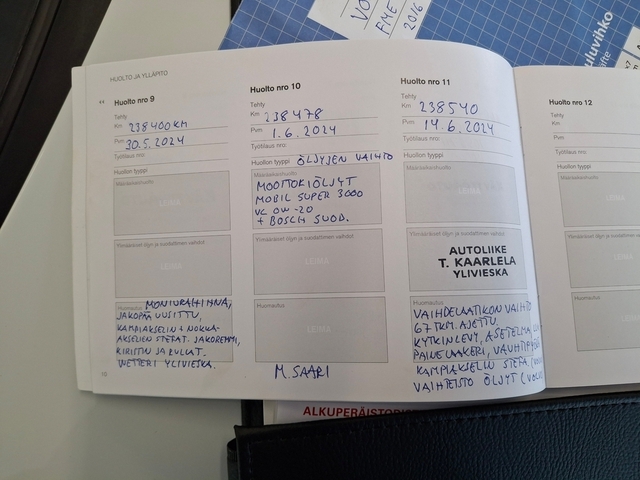 VO
FME
2016
uluvihko
HUOLTO JA YLLÄPITO
Huolto nro 9
Tehty
Km 238400KM
Pvm 30.5.2024
Työtilaus nro:
Huollon tyyppi
Määräaikaishuolto
LEIMA
Ylimääräiset öljyn ja suodattimen vaihdot
LEIMA
Huomautus
MONIURAHIHNA,
JAKOPÄÄ UUSITTU,
KAMPIAKSELIN + NOKKA-
AKSELIEN STEFAT. JAKOREMMI,
KIRISTIN JA RULLAT.
WETTERI YLIVIESKA.
Huolto nro 10
Tehty
Km 238478
Pvm 1.6.2024
Työtilaus nro:
Huollon tyyppi ÖLJYJEN VAIHTO
Määräaikaishuolto
MOOTTORIÖLJYT
MOBIL SUPER 3000
VC 0W-20
+ BOSCH SUOD.
Ylimääräiset öljyn ja suodattimen vaihdot
LEIMA
Huomautus
LEIMA
M. SAARI
Huolto nro 11
Tehty
Km 238540
Pvm 14.6.2024
Työtilaus nro:
Huollon tyyppi
Määräaikaishuolto
LEIMA
Ylimääräiset öljyn ja suodattimen vaihdot
AUTOLIIKE
T. KAARLELA
YLIVIESKA
Huomautus
VAIHDELAATIKON VAIHTO
67TKM. AJETTU.
KYTKINLEVY, ASETELMA
PAINELAAKERI,
KAMPIAKSELIN STEFA.
VAIHTEISTO ÖLJYT
Huolto nro 12
Tehty
Km
Pvm
Työtilaus nro:
Huollon tyyppi
Määräaikaishuolto
Ylimääräiset öljyn ja suodattimen
Huomautus
ALKUPERÄISTO